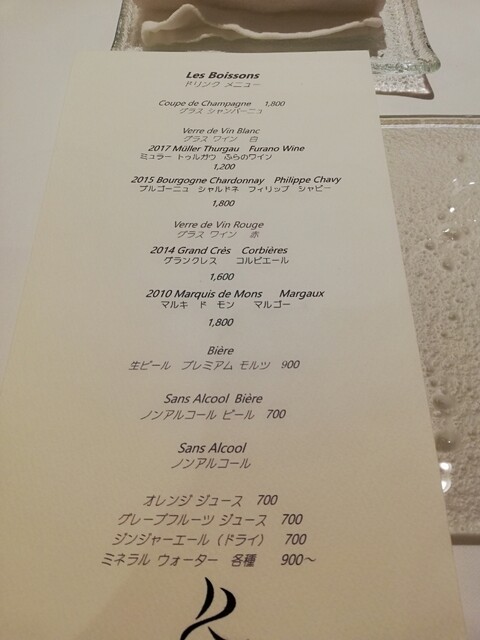 Les Boissons
ドリンク メニュー
Coupe de Champagne 1,800
グラス シャンパーニュ
Verre de Vin Blanc
グラス ワイン 白
2017 Müller Thurgau Furano Wine
ミュラー トゥルガウ ふらのワイン
1,200
2015 Bourgogne Chardonnay Philippe Chavy
ブルゴーニュ シャルドネ フィリップ シャビー
1,800
Verre de Vin Rouge
グラス ワイン 赤
2014 Grand Crès Corbières
グランクレス コルビエール
1,600
2010 Marquis de Mons Margaux
マルキ ド モン マルゴー
1,800
Bière
生ビール プレミアム モルツ 900
Sans Alcool Bière
ノンアルコール ビール 700
Sans Alcool
ノンアルコール
オレンジ ジュース 700
グレープフルーツ ジュース 700
ジンジャーエール（ドライ） 700
ミネラル ウォーター 各種 900～